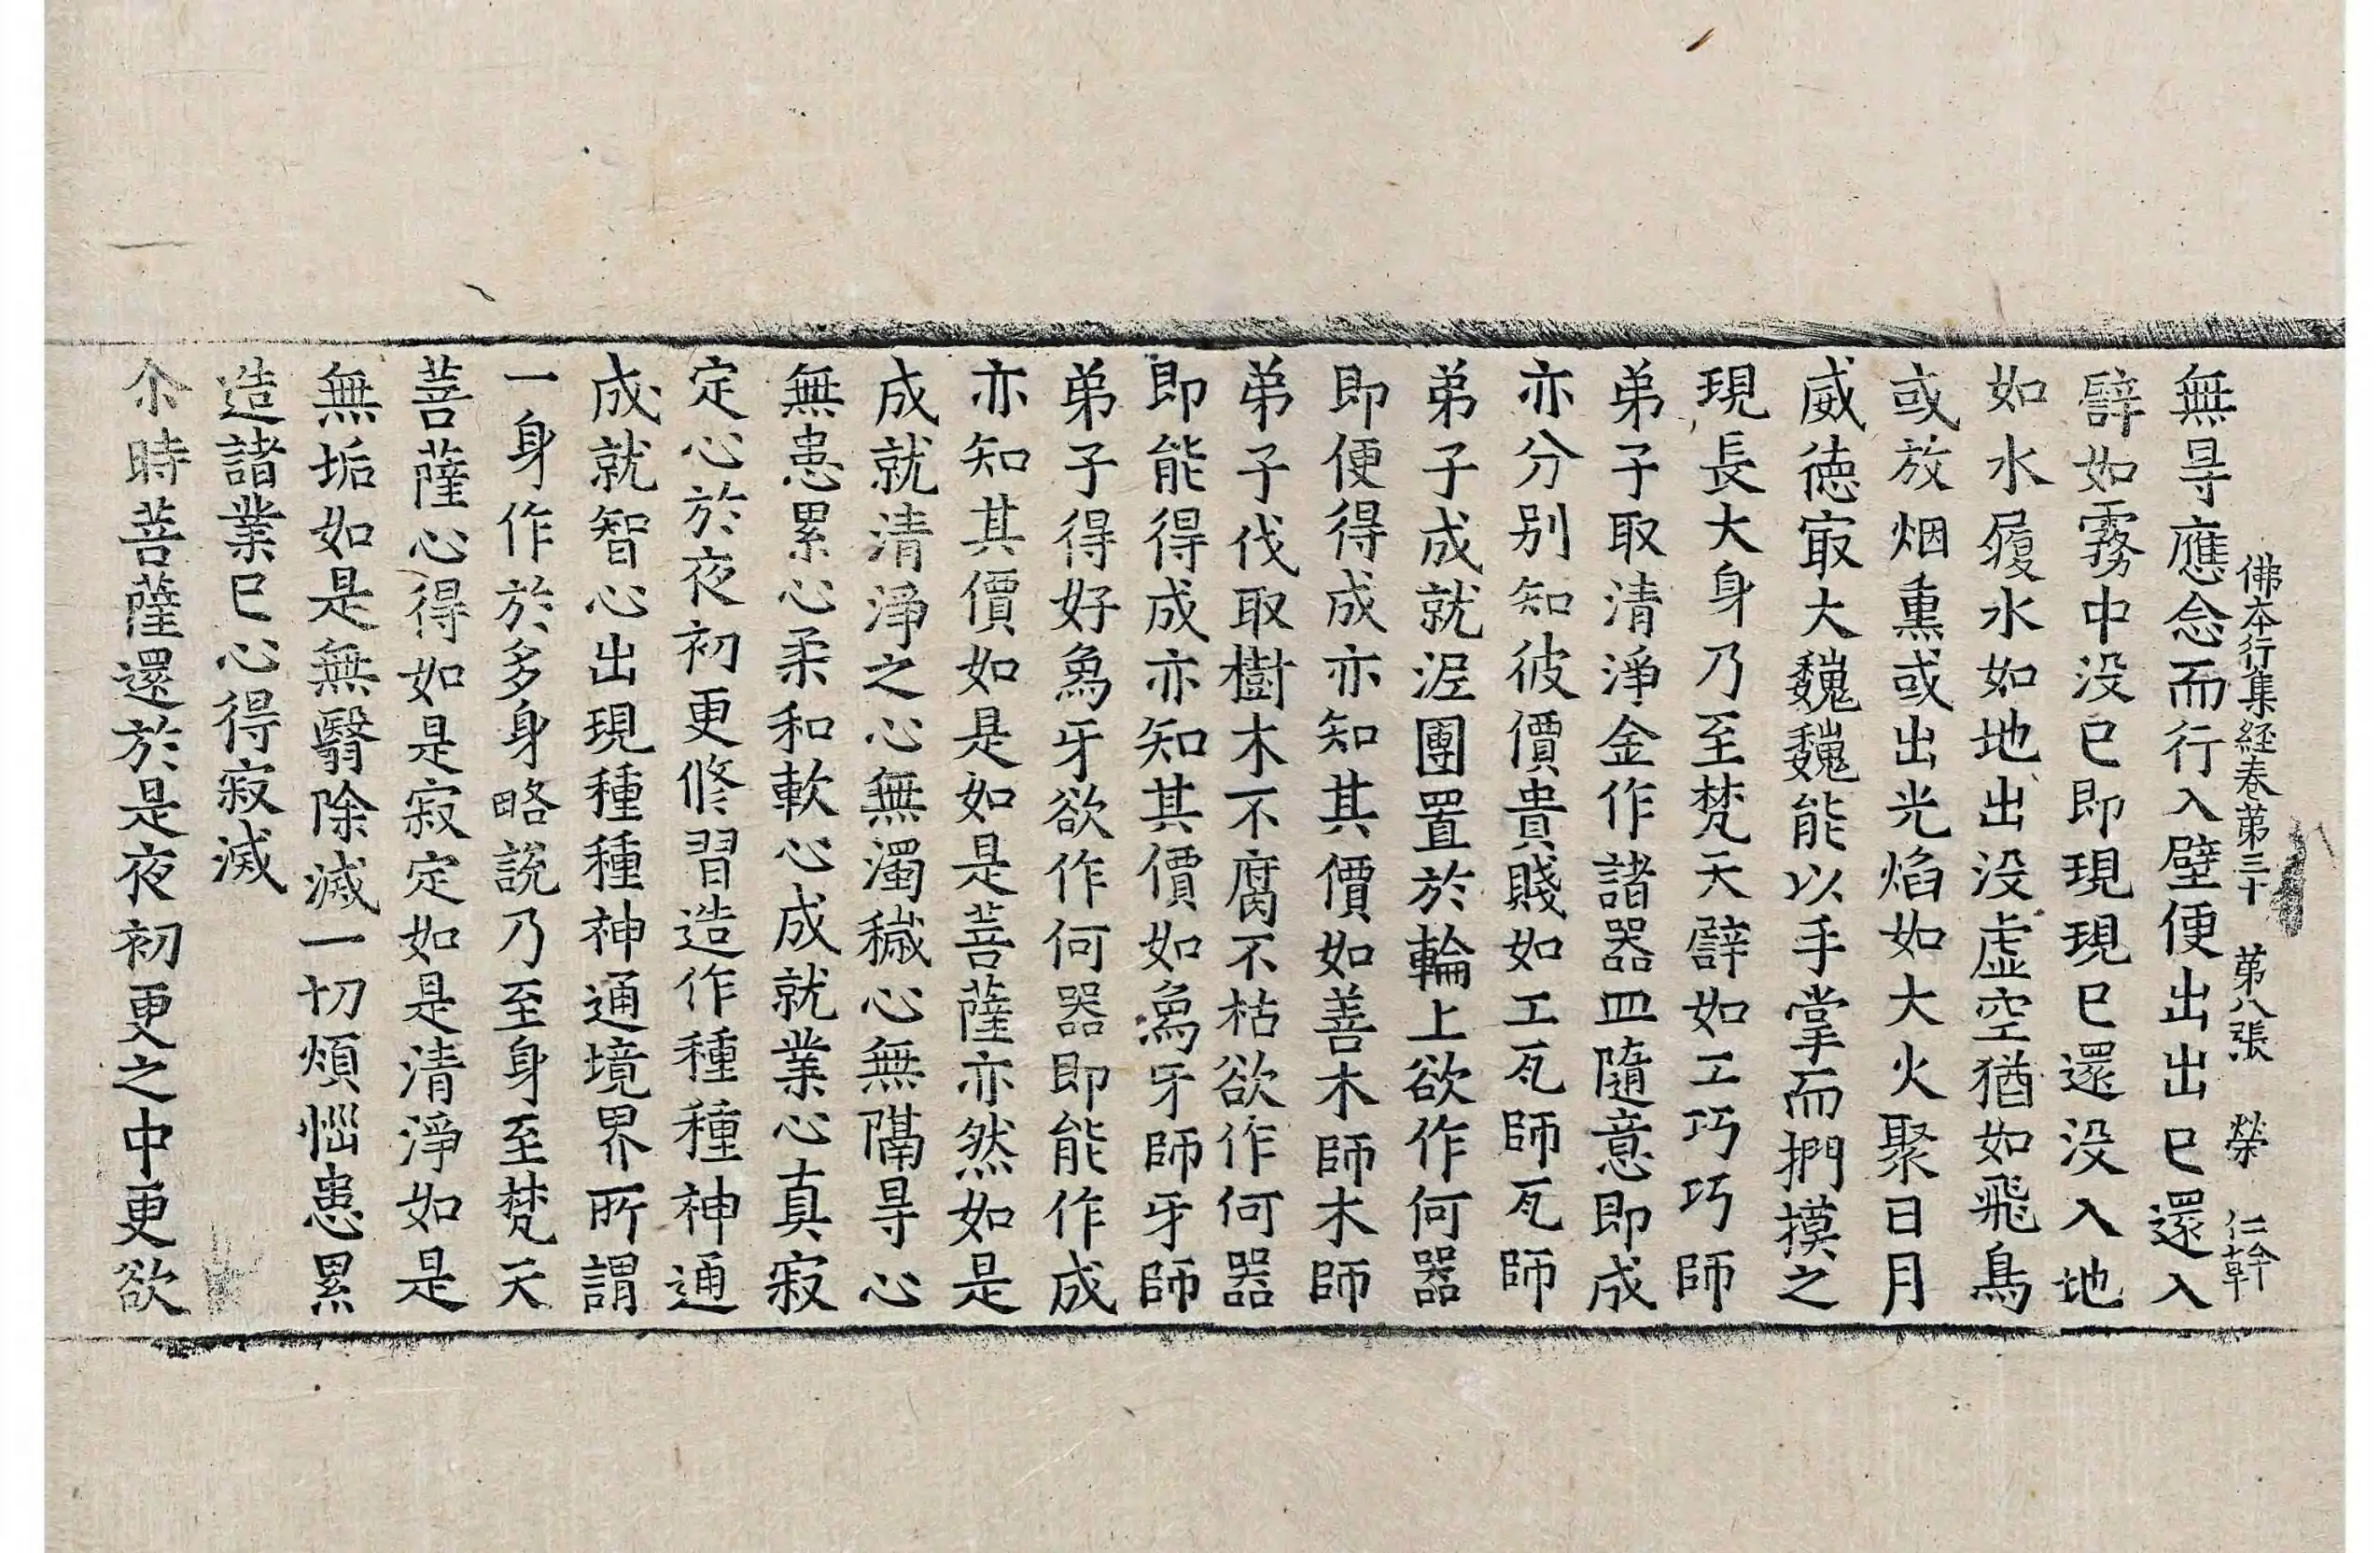 佛本行集経卷苐三十 苐八張 榮 仁幹
無㝵應念而行入壁便出出已還入
譬如霧中没已即現現已還没入地
如水履水如地出没虚空猶如飛鳥
或放烟熏或出光焰如大火聚日月
威德冣大巍巍能以手掌而捫摸之
現長大身乃至梵天譬如工巧巧師
弟子取清淨金作諸器皿隨意即成
亦分別知彼價貴賤如工瓦師瓦師
弟子成就泥團置於輪上欲作何器
即便得成亦知其價如善木師木師
弟子伐取樹木不腐不枯欲作何器
即能得成亦知其價如為牙師牙師
弟子得好為牙欲作何器即能作成
亦知其價如是如是菩薩亦然如是
成就清淨之心無濁穢心無隔㝵心
無患累心柔和軟心成就業心真寂
定心於夜初更修習造作種種神通
成就智心出現種種神通境界所謂
一身作於多身略說乃至身至梵天
菩薩心得如是寂定如是清淨如是
無垢如是無翳除滅一切煩惱患累
造諸業已心得寂滅
尒時菩薩還於是夜初更之中更欲